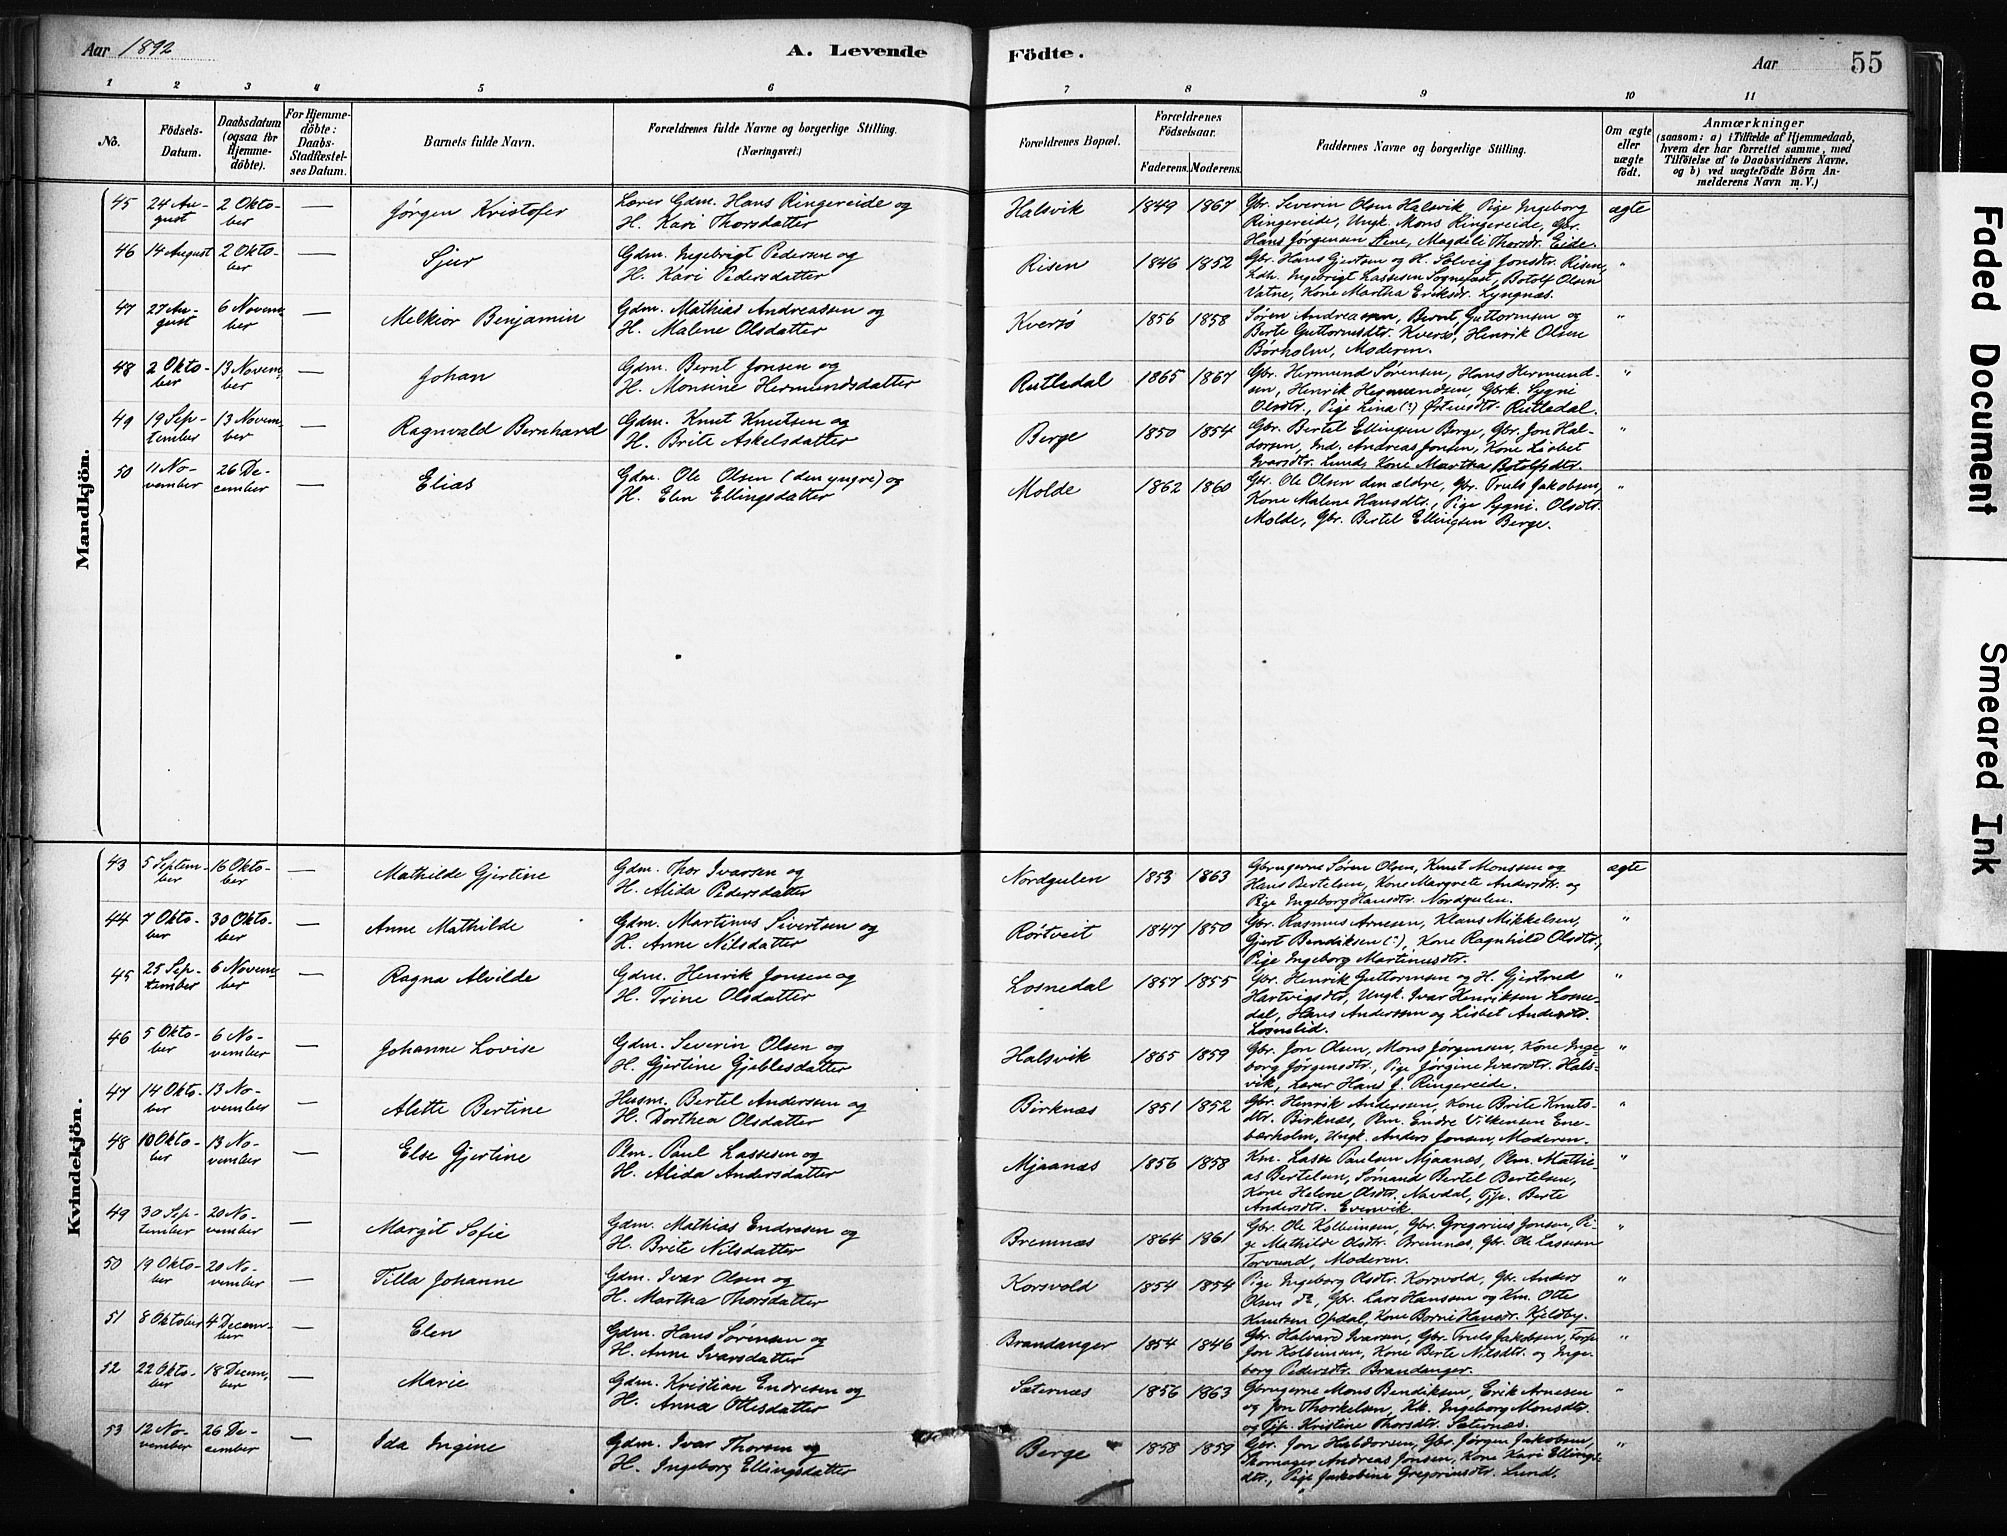 Aar 1892
A. Levende
Födte.
Aar
55
1 2 3 4 5 6 7 8 9 10 11
No.
Födsels-
Datum.
Daabsdatum
(ogsaa for
Hjemme-
döbte).
For Hjemme-
döbte:
Daabs-
Stadfæstel-
ses Datum.
Barnets fulde Navn.
Forældrenes fulde Navne og borgerlige Stilling.
(Næringsvei.)
Forældrenes Bopæl.
Forældrenes
Födselsaar.
Faderens. Moderens.
Faddernes Navne og borgerlige Stilling.
Om ægte
eller
uægte
födt.
Anmærkninger
(saasom: a) i Tilfælde af Hjemmedaab,
hvem der har forrettet samme, med
Tilföielse af to Daabsvidners Navne.
og b) ved uægtefödte Börn An-
melderens Navn m. V.)
Mandkjön.
45 24 Au-
gust
2 Okto-
ber
—
Jørgen Kristofer
Lærer Gdm. Hans Ringereide og
H. Kari Thorsdatter
Halsvik 1849 1867
Gbr. Severin Olsen Halsvik, Pige Ingeborg
Ringereide, Ungk. Mons Ringereide, Gbr.
Hans Jørgensen Stene, Magdeli Thorsdr. Eide.
ægte
46 14 August
2 Okto-
ber
—
Sjur
Gdm. Ingebrigt Pedersen og
H. Kari Pedersdatter
Risen 1846 1852
Gbr. Hans Gjertsen og H. Solveig Jonsdtr. Risen,
Ldh. Ingebrigt Lassesen Sognefæst, Botolf Olsen
Vatne, Kone Martha Eriksdr. Lyngnæs.
"
47 27 Au-
gust
6 Novem-
ber
—
Melkior Benjamin
Gdm. Mathias Andreassen og
H. Malene Olsdatter
Kversø 1856 1858
Søren Andreassen, Bernt Guttormsen og
Berte Guttormsdtr. Kversø, Henrik Olsen
Børholm, Moderen.
"
48 2 Okto-
ber
13 Novem-
ber
—
Johan
Gdm. Bernt Jonsen og
H. Monsine Hermundsdatter
Rutledal 1865 1867
Gbr. Hermund Sørensen, Hans Hermund-
sen, Henrik Hermundsen, Gbrk. Sygni
Olsdtr., Pige Lina (:) Østensdtr. Rutledal.
"
49 19 Sep-
tember
13 Novem-
ber
—
Ragnvald Bernhard
Gdm. Knut Knutsen og
H. Brite Askelsdatter
Berge 1850 1854
Gbr. Bertel Ellingsen Berge, Gbr. Jon Hal-
dorsen, Ind. Andreas Jonsen, Kone Lisbet
Ivarsdtr. Lund, Kone Martha Botolfsdtr.
"
50 11 No-
vember
26 De-
cember
—
Elias
Gdm. Ole Olsen (den yngre) og
H. Elen Ellingsdatter
Molde 1862 1860
Gbr. Ole Olsen den ældre, Gbr. Truls Jakobsen,
Kone Malene Hansdtr., Pige Sygni. Olsdtr.
Molde, Gbr. Bertel Ellingsen Berge.
"
Kvindekjön.
43 5 Septem-
ber
16 Okto-
ber
—
Mathilde Gjertine
Gdm. Thor Ivarsen og
H. Alida Pedersdatter
Nordgulen 1853 1863
Gbrugerne Søren Olsen, Knut Monssen og
Hans Bertelsen, Kone Margrete Andersdtr. og
Pige Ingeborg Hansdtr. Nordgulen.
ægte
44 7 Okto-
ber
30 Okto-
ber
—
Anne Mathilde
Gdm. Martinus Sivertsen og
H. Anne Nilsdatter
Rørtveit 1847 1850
Gbr. Rasmus Arnesen, Klaus Mikkelsen,
Gjert Bendiksen (:), Kone Ragnhild Olsdtr.,
Pige Ingeborg Martinusdtr.
"
45 25 Sep-
tember
6 Novem-
ber
—
Ragna Alvilde
Gdm. Henrik Jonsen og
H. Trine Olsdatter
Losnedal 1857 1855
Gbr. Henrik Guttormsen og H. Gjertrud
Hartvigsdtr., Ungk. Ivar Henriksen Losne-
dal, Hans Anderssen og Lisbet Andersdtr.
Losnelid.
"
46 5 Okto-
ber
6 No-
vember
—
Johanne Lovise
Gdm. Severin Olsen og
H. Gjertine Gjeblesdatter
Halsvik 1865 1859
Gbr. Jon Olsen, Mons Jørgensen, Kone Inge-
borg Jørgensdtr., Pige Jørgine Ivarsdtr. Hals-
vik, Lærer Hans J. Ringereide.
"
47 14 Okto-
ber
13 No-
vember
—
Alette Bertine
Husm. Bertel Anderssen og
H. Dorthea Olsdatter
Birknæs 1851 1852
Gbr. Henrik Andersen, Kone Brite Knuts-
dtr. Birknæs, Plm. Endre Vilkensen Ene-
bærholm, Ungk. Anders Jonsen, Moderen.
"
48 10 Okto-
ber
13 No-
vember
—
Else Gjertine
Plm. Paul Lassesen og
H. Alida Andersdatter
Mjaanæs 1856 1858
Km. Lasse Paulsen Mjaanæs, Plm. Mathi-
as Bertelsen, Sømand Bertel Bertelsen,
Kone Helene Olsdtr. Navdal, Tjp. Berte
Andersdtr. Evenvik
"
49 30 Sep-
tember
20 No-
vember
—
Margit Sofie
Gdm. Mathias Endresen og
H. Brite Nilsdatter
Bremnæs 1864 1861
Gbr. Ole Kolbeinsen, Gbr. Gregorius Jonsen, Pi-
ge Mathilde Olsdtr. Bremnæs, Gbr. Ole Lassesen
Torvund, Moderen.
"
50 19 Okto-
ber
20 No-
vember
—
Tilla Johanne
Gdm. Ivar Olsen og
H. Martha Thorsdatter
Korsvold 1854 1854
Pige Ingeborg Olsdtr. Korsvold, Gbr. Anders
Olsen do, Gbr. Lars Hanssen og Km. Otte
Knutsen Opdal, Kone Borni Hansdr. Kjelsby.
"
51 8 Oktober
4 Decem-
ber
—
Elen
Gdm. Hans Sørensen og
H. Anne Ivarsdatter
Brandanger 1854 1846
Gbr. Halvard Ivarsen, Gbr. Truls Jakobsen,
Jon Kolbeinsen, Kone Berte Nilsdtr. og Inge-
borg Pedersdtr. Brandanger.
"
52 22 Okto-
ber
18 Decem-
ber
—
Marie
Gdm. Kristian Endresen og
H. Anna Ottesdatter
Sæternæs 1856 1863
Gbrugerne Mons Bendiksen, Erik Arnesen
og Jon Thorkelsen, Kk. Ingeborg Monsdtr.
og Tjp. Kristine Thorsdtr. Sæternæs.
"
53 12 No-
vember
26 De-
cember
—
Ida Ingine
Gdm. Ivar Thorsen og
H. Ingeborg Ellingsdatter
Berge 1858 1859
Gbr. Jon Haldorsen, Gbr. Jørgen Jakobsen,
Skomager Andreas Jonsen, Kone Kari Ellings-
dtr., Pige Jakobine Gregoriusdtr. Lund.
"
Faded Document
Smeared Ink